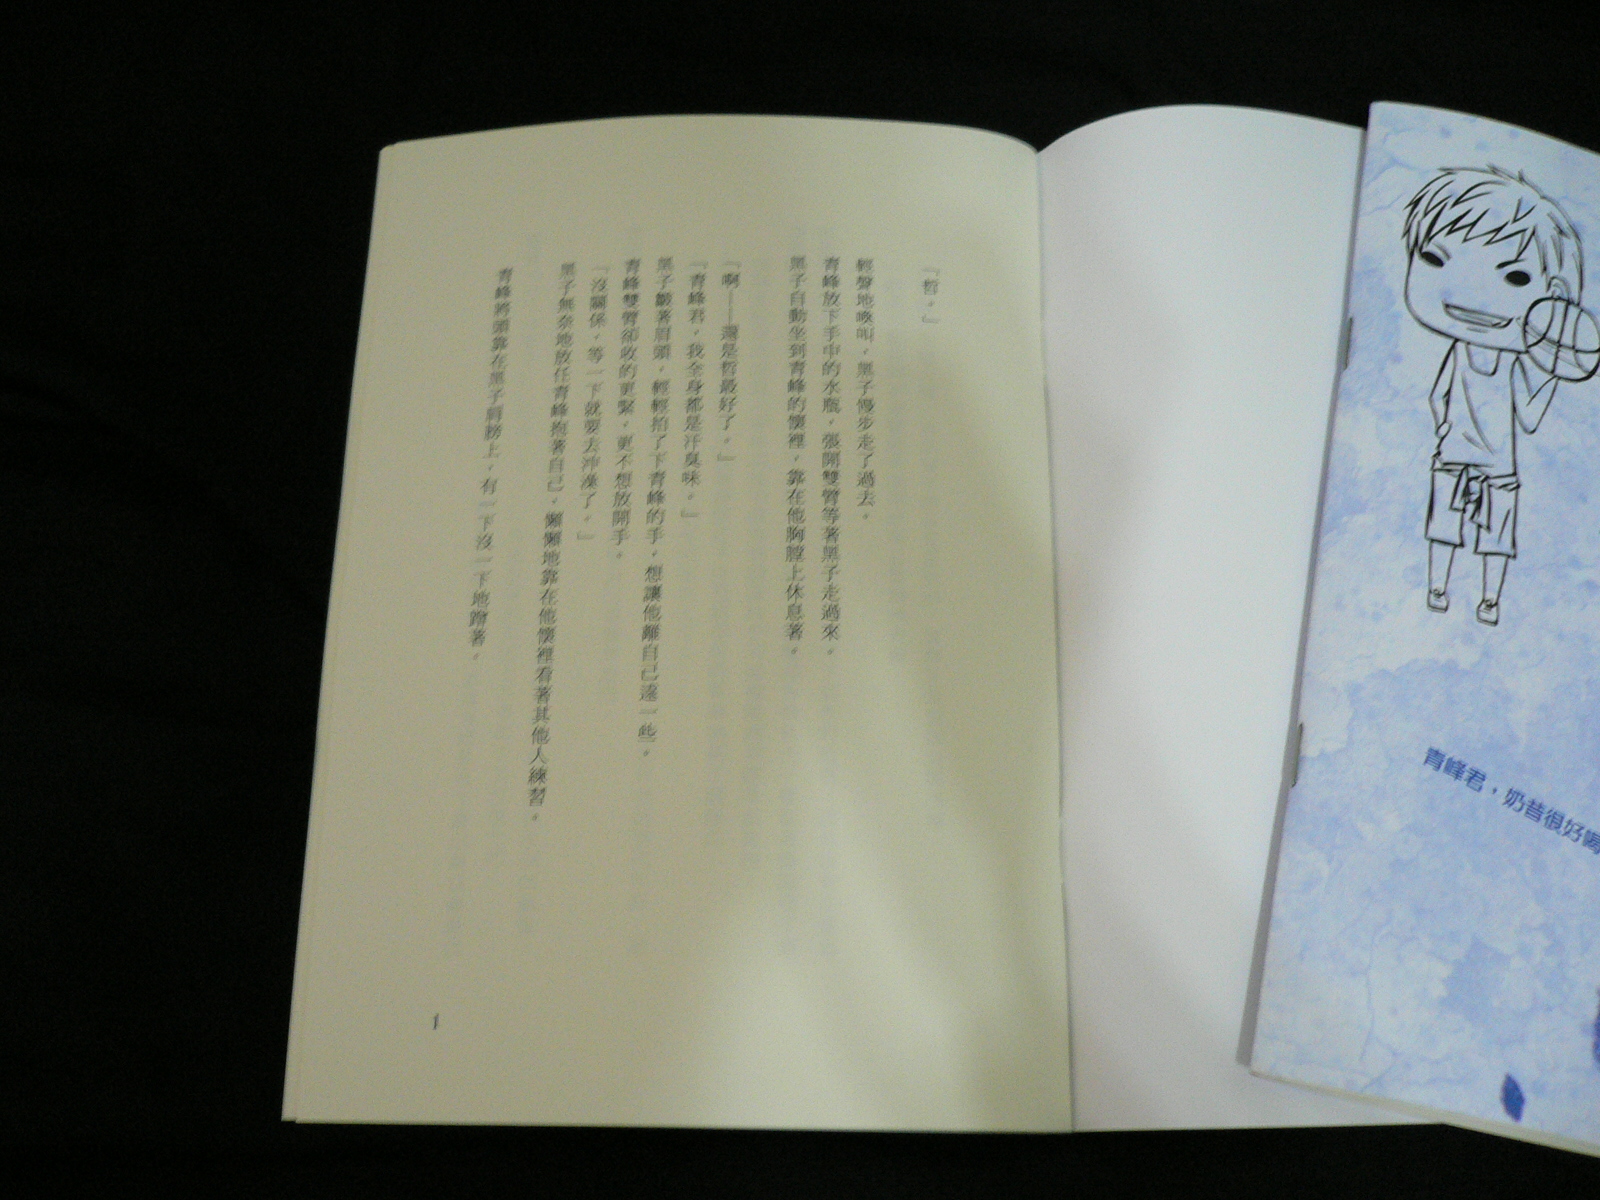 「哲。」
輕聲地喚叫，黑子慢步走了過去。
青峰放下手中的水瓶，張開雙臂等著黑子走過來。
黑子自動坐到青峰的懷裡，靠在他胸膛上休息著。
「啊——還是哲最好了。」
「青峰君，我全身都是汗臭味。」
黑子皺著眉頭，輕輕拍了下青峰的手，想讓他離自己遠一些。
青峰雙臂卻收的更緊，更不想放開手。
「沒關係，等一下就要去沖澡了。」
黑子無奈地放任青峰抱著自己，懶懶地靠在他懷裡看著其他人練習。
青峰將頭靠在黑子肩膀上，有一下沒一下地蹭著。
1
青峰君，奶昔很好喝